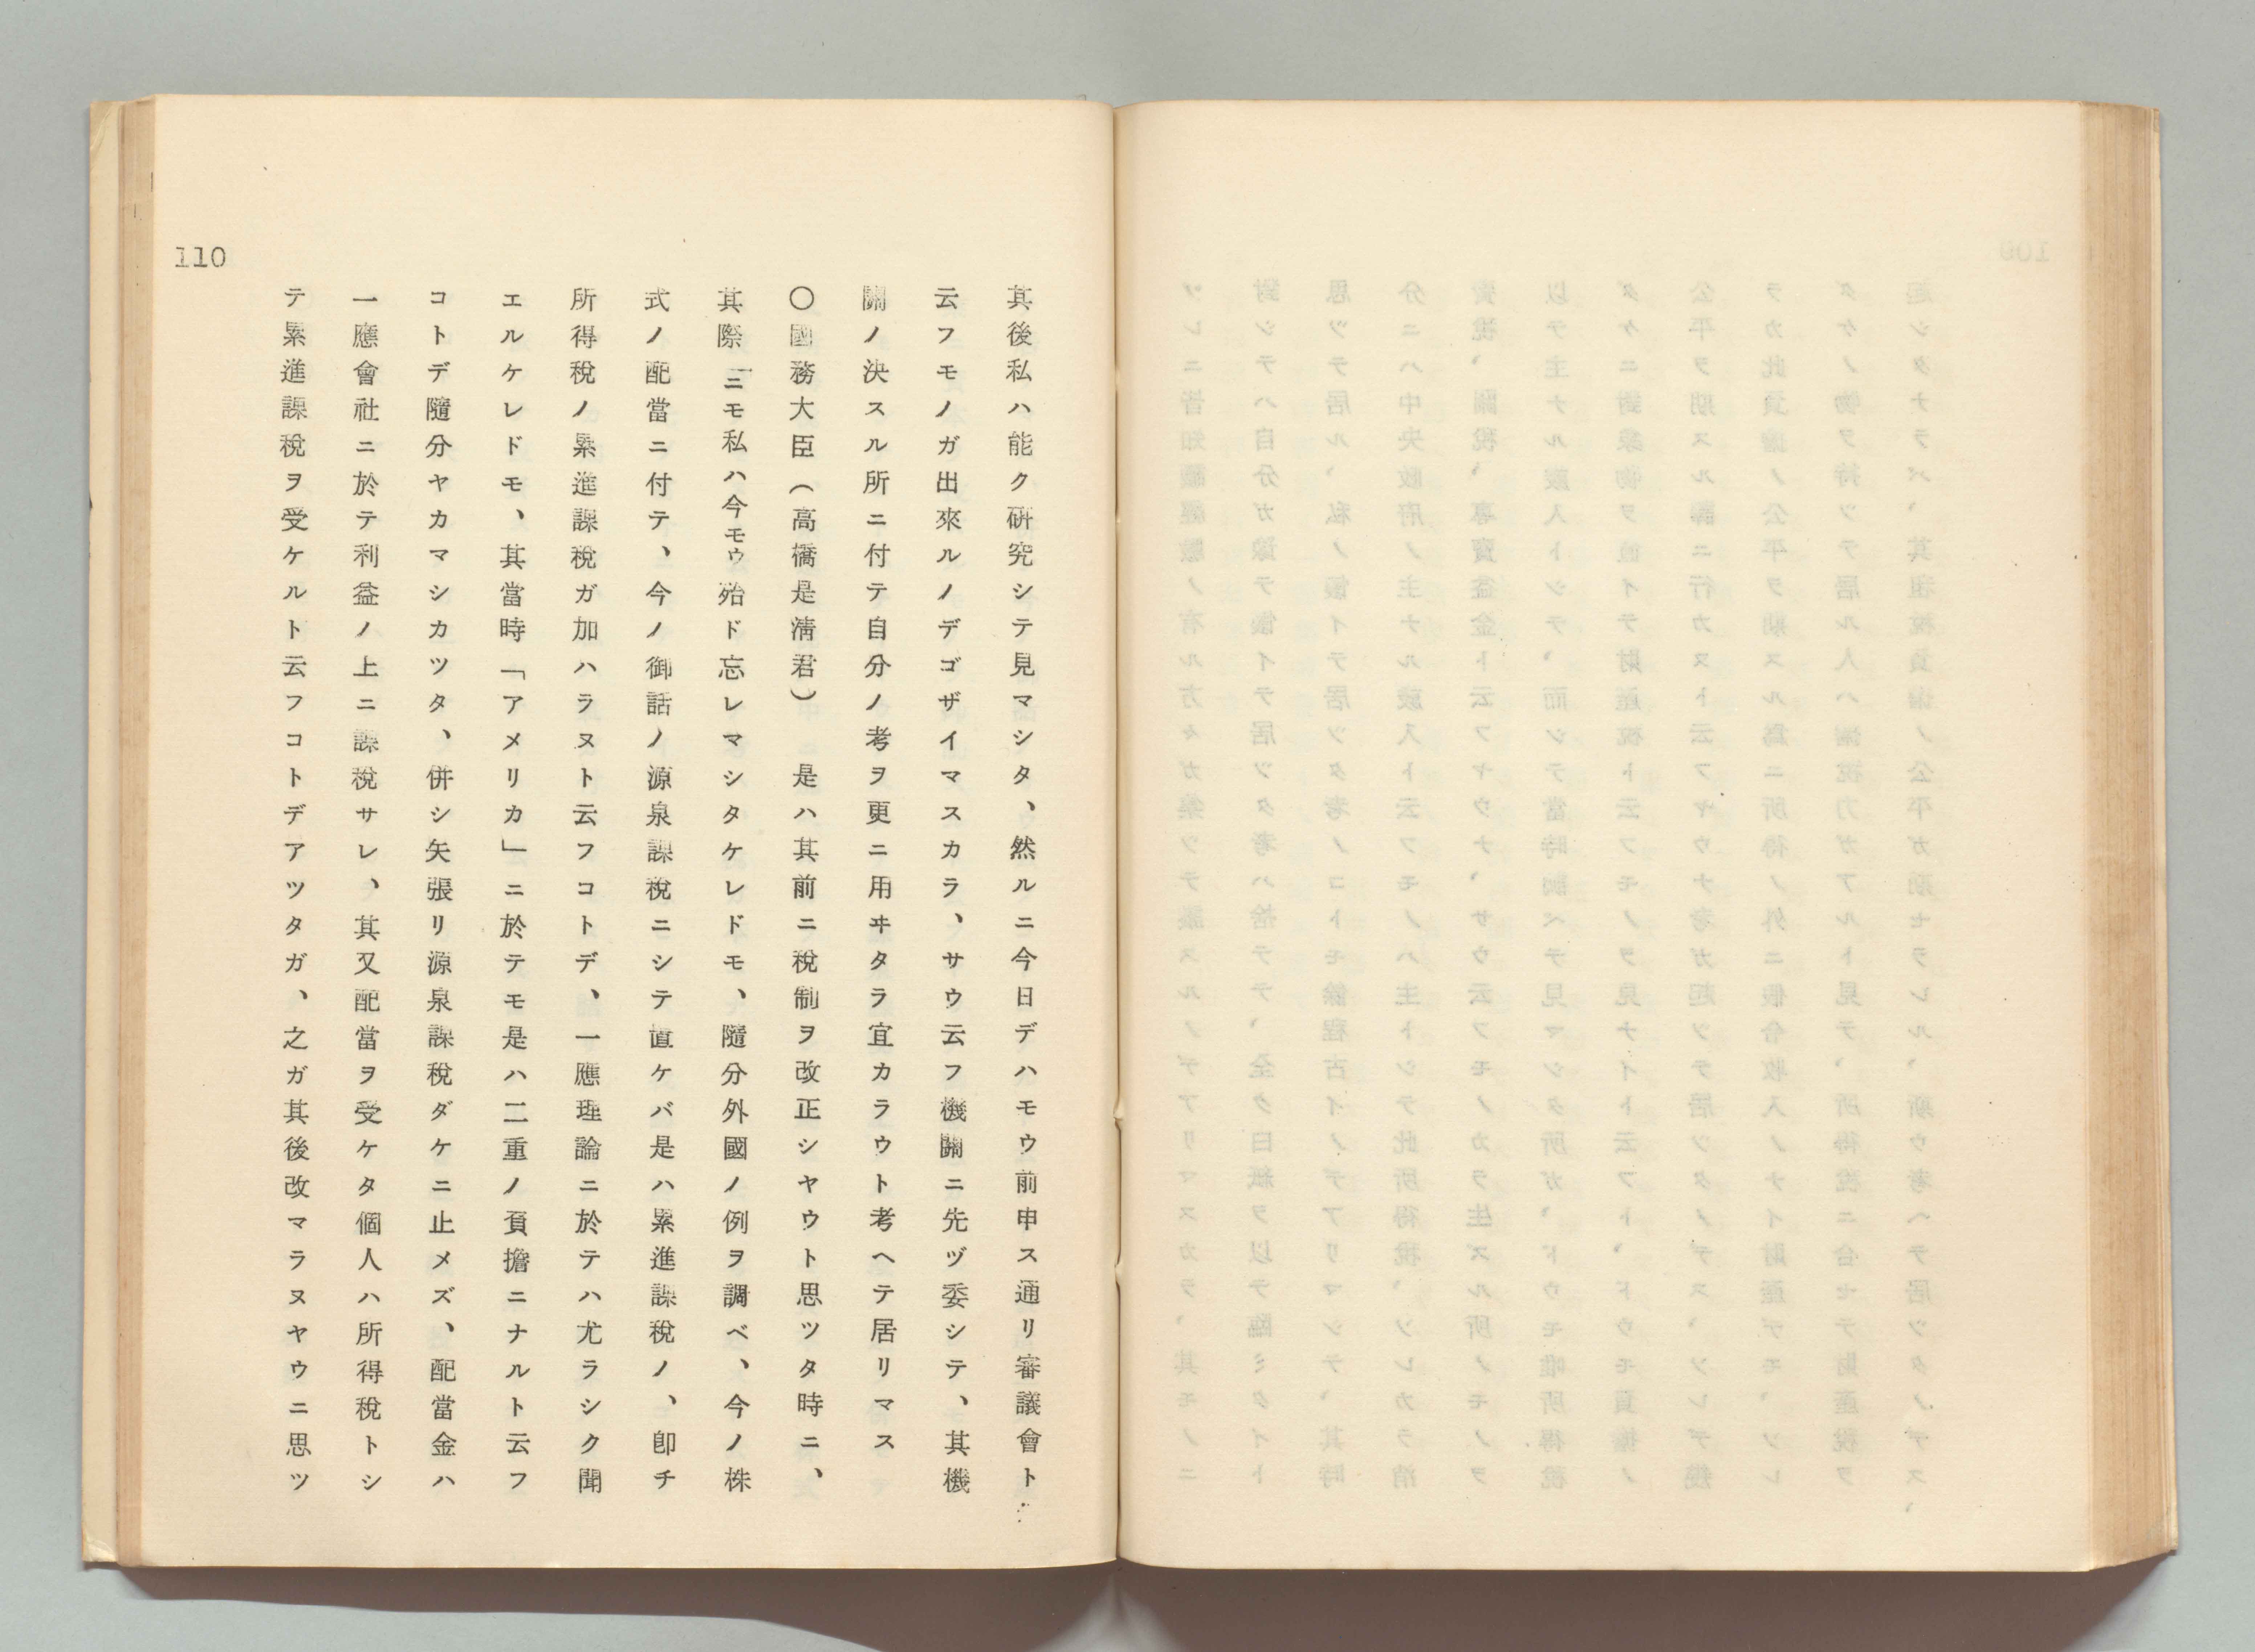 110
其後私ハ能ク硏究シテ見マシタ、然ルニ今日デハモウ前申ス通リ審議會ト
云フモノガ出來ルノデゴザイマスカラ、サウ云フ機關ニ先ヅ委シテ、其機
關ノ決スル所ニ付テ自分ノ考ヲ更ニ用ヰタラ宜カラウト考ヘテ居リマス
〇國務大臣（高橋是淸君）　是ハ其前ニ稅制ヲ改正シヤウト思ツタ時ニ、
其際ニモ私ハ今モウ殆ド忘レマシタケレドモ、隨分外國ノ例ヲ調ベ、今ノ株
式ノ配當ニ付テ、今ノ御話ノ源泉課稅ニシテ置ケバ是ハ累進課稅ノ、卽チ
所得稅ノ累進課稅ガ加ハラヌト云フコトデ、一應理論ニ於テハ尤ラシク聞
エルケレドモ、其當時「アメリカ」ニ於テモ是ハ二重ノ負擔ニナルト云フ
コトデ隨分ヤカマシカツタ、併シ矢張リ源泉課稅ダケニ止メズ、配當金ハ
一應會社ニ於テ利益ノ上ニ課稅サレ、其又配當ヲ受ケタ個人ハ所得稅トシ
テ累進課稅ヲ受ケルト云フコトデアツタガ、之ガ其後改マラヌヤウニ思ツ